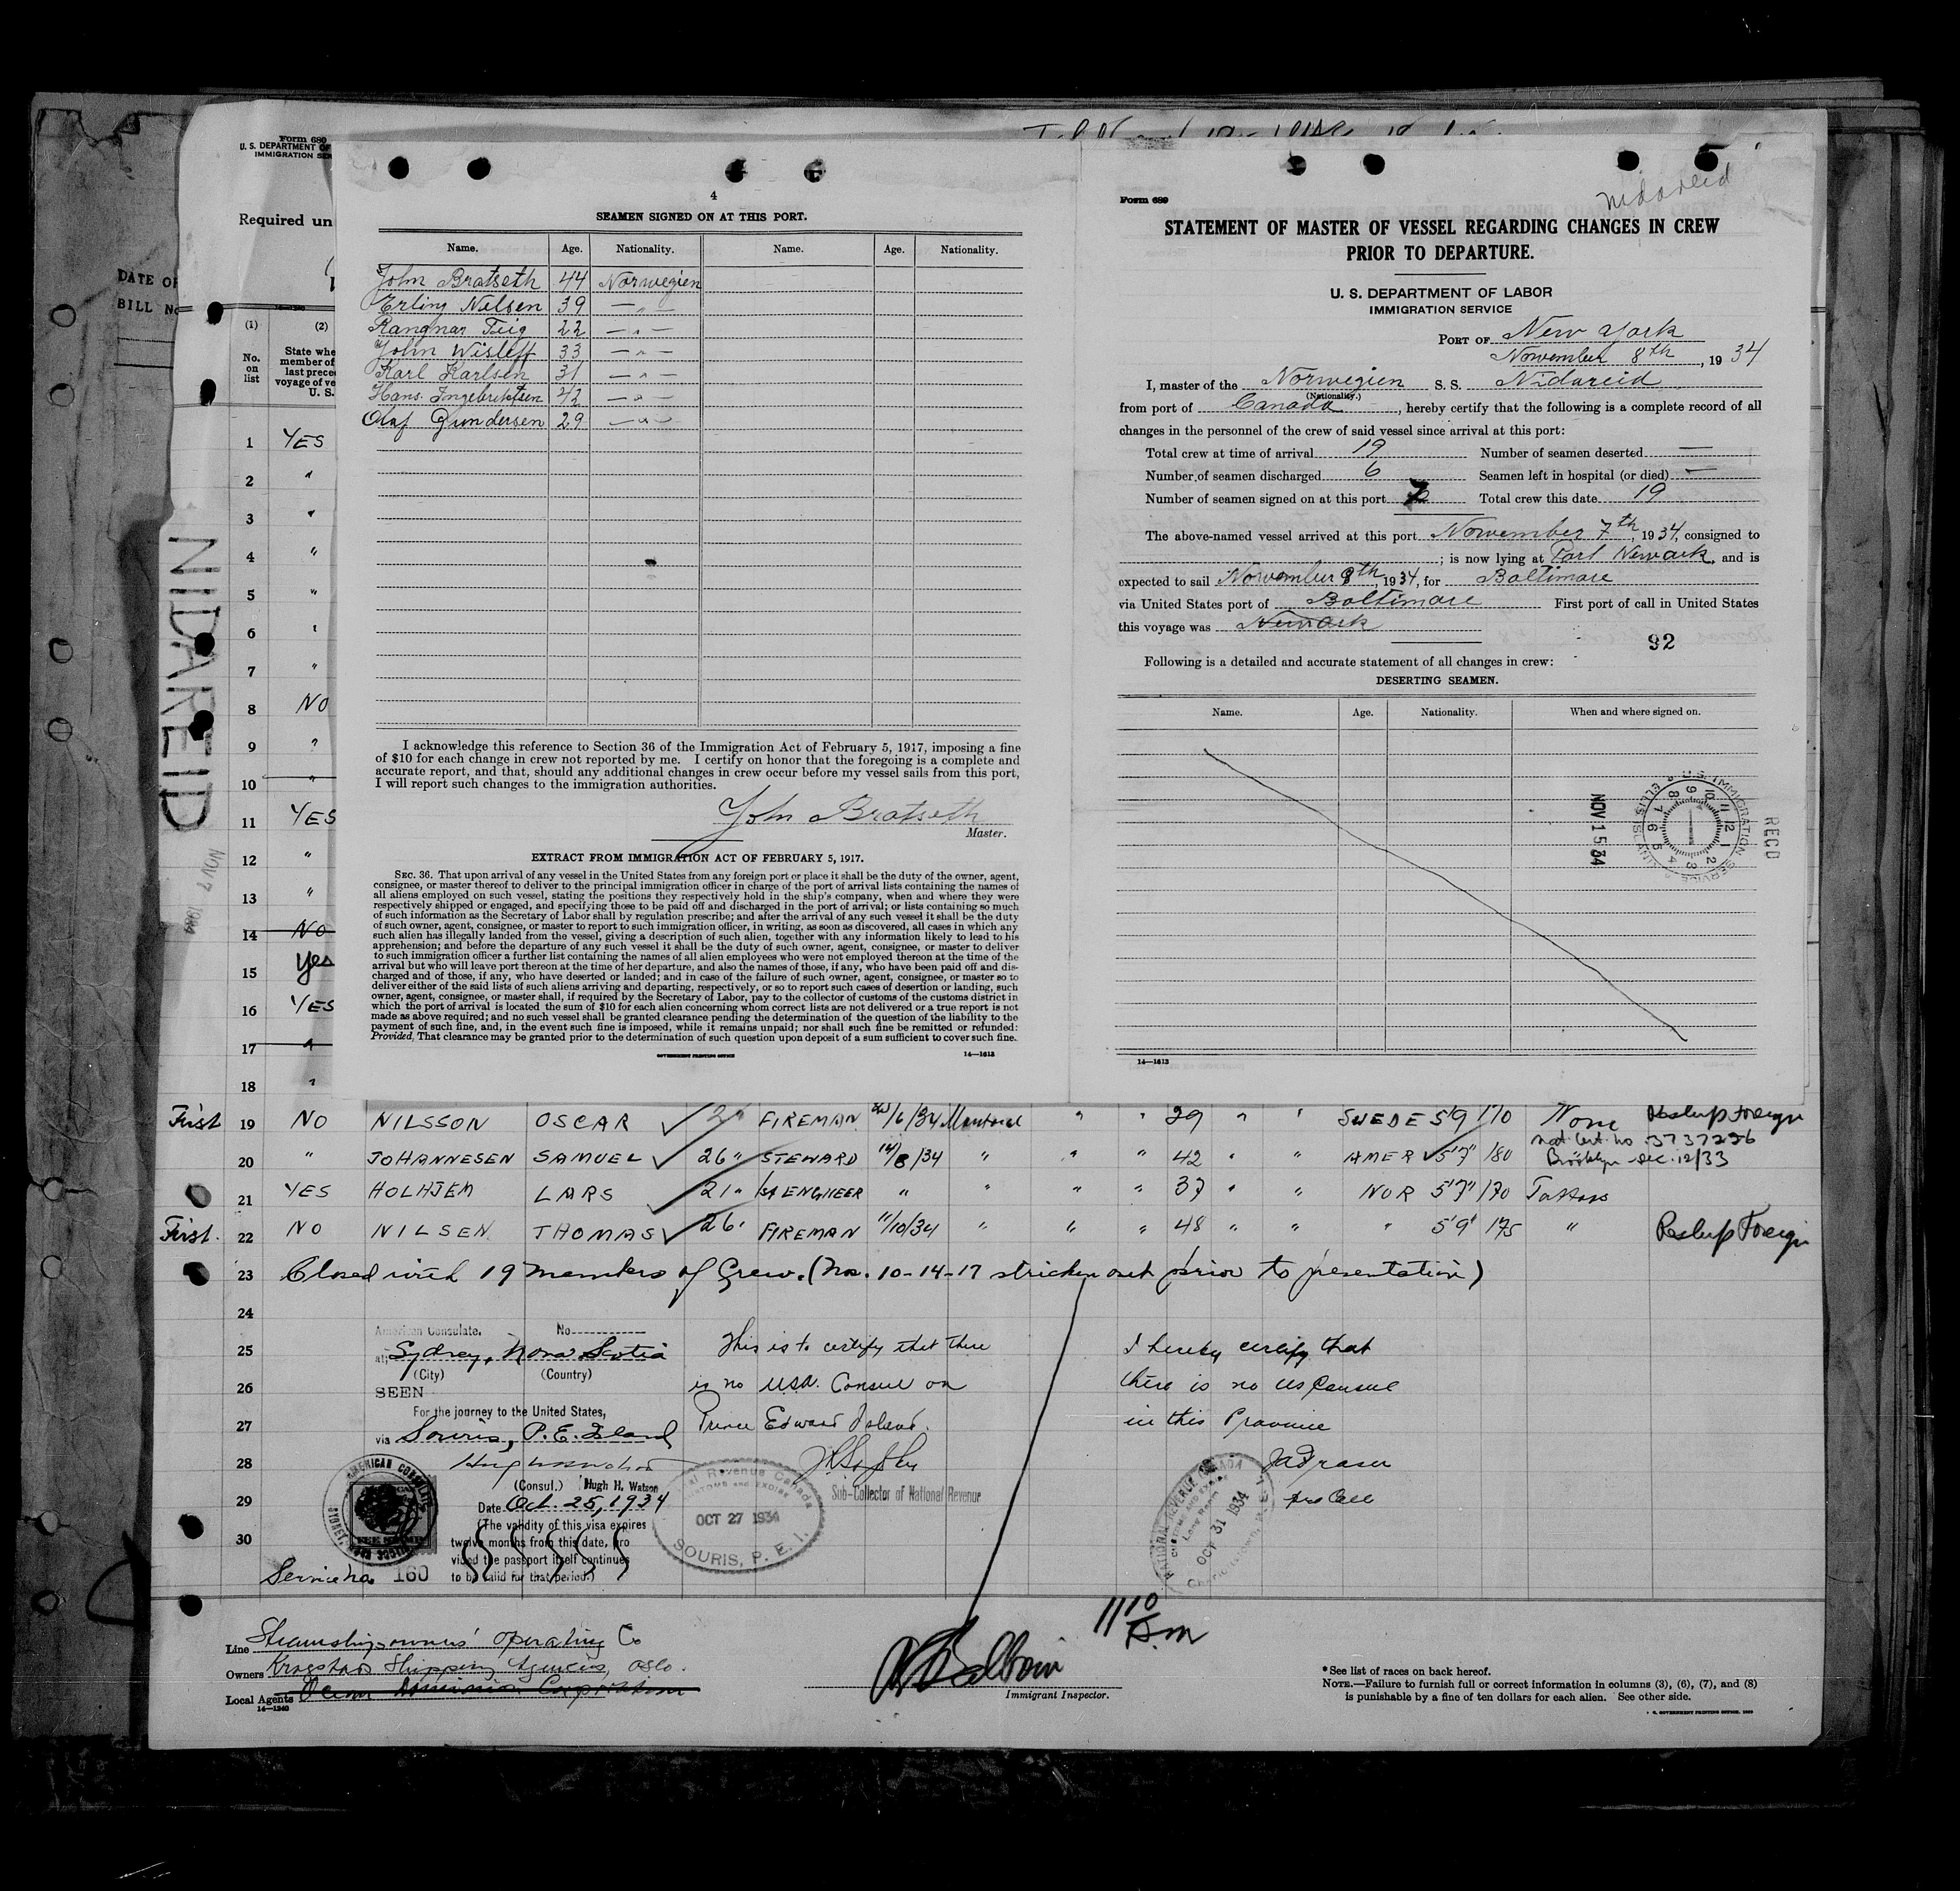 Form 689
U. S. DEPARTMENT OF
IMMIGRATION SER
Required un
DATE OF
BILL NO
(1)
(2)
No.
on
list
State whe
member of
last prece
voyage of ve
U. S.
1 YES
2 "
3 "
4 "
5 "
6 "
7 "
8 NO
9 "
10 "
11 YES
12 "
13 "
14 NO
15 Yes
16 YES
17 "
18 "
NIDAREID
NOV 7 1934
4
SEAMEN SIGNED ON AT THIS PORT.
Name. Age. Nationality. Name. Age. Nationality.
John Bratseth 44 Norwegien
Erling Nilsen 39 — " —
Rangnar Teig 22 — " —
John Wisleff 33 — " —
Karl Karlsen 31 — " —
Hans. Ingebriktsen 42 — " —
Olaf Gundersen 29 — " —
I acknowledge this reference to Section 36 of the Immigration Act of February 5, 1917, imposing a fine
of $10 for each change in crew not reported by me. I certify on honor that the foregoing is a complete and
accurate report, and that, should any additional changes in crew occur before my vessel sails from this port,
I will report such changes to the immigration authorities.
John Bratseth
Master.
EXTRACT FROM IMMIGRATION ACT OF FEBRUARY 5, 1917.
SEC. 36. That upon arrival of any vessel in the United States from any foreign port or place it shall be the duty of the owner, agent,
consignee, or master thereof to deliver to the principal immigration officer in charge of the port of arrival lists containing the names of
all aliens employed on such vessel, stating the positions they respectively hold in the ship's company, when and where they were
respectively shipped or engaged, and specifying those to be paid off and discharged in the port of arrival; or lists containing so much
of such information as the Secretary of Labor shall by regulation prescribe; and after the arrival of any such vessel it shall be the duty
of such owner, agent, consignee, or master to report to such immigration officer, in writing, as soon as discovered, all cases in which any
such alien has illegally landed from the vessel, giving a description of such alien, together with any information likely to lead to his
apprehension; and before the departure of any such vessel it shall be the duty of such owner, agent, consignee, or master to deliver
to such immigration officer a further list containing the names of all alien employees who were not employed thereon at the time of the
arrival but who will leave port thereon at the time of her departure, and also the names of those, if any, who have been paid off and dis-
charged and of those, if any, who have deserted or landed; and in case of the failure of such owner, agent, consignee, or master so to
deliver either of the said lists of such aliens arriving and departing, respectively, or so to report such cases of desertion or landing, such
owner, agent, consignee, or master shall, if required by the Secretary of Labor, pay to the collector of customs of the customs district in
which the port of arrival is located the sum of $10 for each alien concerning whom correct lists are not delivered or a true report is not
made as above required; and no such vessel shall be granted clearance pending the determination of the question of the liability to the
payment of such fine, and, in the event such fine is imposed, while it remains unpaid; nor shall such fine be remitted or refunded:
Provided, That clearance may be granted prior to the determination of such question upon deposit of a sum sufficient to cover such fine.
GOVERNMENT PRINTING OFFICE 14—1613
Nidareid
Form 689
STATEMENT OF MASTER OF VESSEL REGARDING CHANGES IN CREW
PRIOR TO DEPARTURE.
U. S. DEPARTMENT OF LABOR
IMMIGRATION SERVICE
PORT OF New York
November 8th, 1934
I, master of the Norwegien S. S. Nidareid
(Nationality.)
from port of Canada, hereby certify that the following is a complete record of all
changes in the personnel of the crew of said vessel since arrival at this port:
Total crew at time of arrival 19 Number of seamen deserted —
Number of seamen discharged 6 Seamen left in hospital (or died) —
Number of seamen signed on at this port 7 Total crew this date 19
The above-named vessel arrived at this port November 7th, 1934, consigned to
; is now lying at Port Newark, and is
expected to sail November 8th, 1934, for Baltimore
via United States port of Baltimore First port of call in United States
this voyage was Newark
92
Following is a detailed and accurate statement of all changes in crew:
DESERTING SEAMEN.
Name. Age. Nationality. When and where signed on.
RECD
U.S. IMMIGRATION SERVICE ELLIS ISLAND
NOV 15 34
14—1613
First 19 NO NILSSON OSCAR FIREMAN /6/34 Montreal " " 29 " " SWEDE 5'9 170 None Reship Foreign
20 " JOHANNESEN SAMUEL 26 " STEWARD 14/8/34 " " " 42 " " AMER 5'7" 180 nat. Cert. no. 3737226
Brooklyn Dec. 12/33
21 YES HOLHJEM LARS 21 " ENGINEER " " " " 37 " " NOR 5'7" 170 Tattoos
First. 22 NO NILSEN THOMAS 26 " FIREMAN 11/10/34 " " " 48 " " " 5'9" 175 " Reship Foreign
23 Closed with 19 members of Crew. (Nos. 10-14-17 stricken out prior to presentation)
24
25
26
27
28
29
30
American Consulate. No
at Sydney, Nova Scotia
(City) (Country)
SEEN
For the journey to the United States,
via Souris, P.E. Island
(Consul.) Hugh H. Watson
Date Oct. 25, 1934
(The validity of this visa expires
twelve months from this date, pro
vided the passport itself continues
to be valid for that period.)
AMERICAN CONSULATE SYDNEY, NOVA SCOTIA
Service No. 160
This is to certify that there
is no USA. Consul on
Prince Edward Island.
Sub-Collector of National Revenue
National Revenue Canada
CUSTOMS AND EXCISE
OCT 27 1934
SOURIS, P. E. I.
I hereby certify that
there is no US Consul
in this Province
JA Fraser
NATIONAL REVENUE CANADA
CUSTOMS AND EXCISE
Long Room
OCT 31 1934
1110
Line Steamshipowners' Operating Co
Owners Krogstads Shipping Agencies, Oslo.
Local Agents Ocean Dominion Corporation
14—1240
Immigrant Inspector.
*See list of races on back hereof.
NOTE.—Failure to furnish full or correct information in columns (3), (6), (7), and (8)
is punishable by a fine of ten dollars for each alien. See other side.
U. S. GOVERNMENT PRINTING OFFICE: 1929